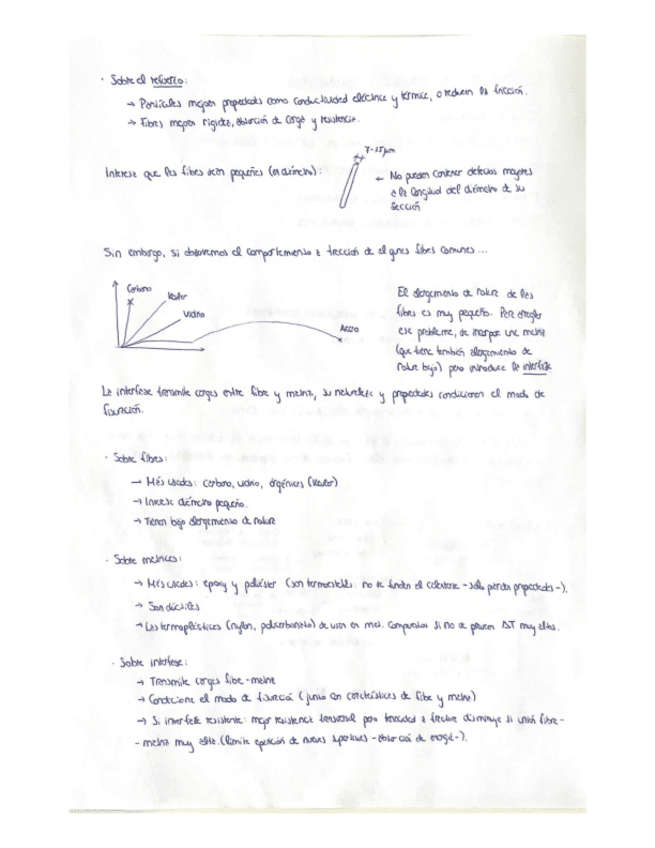 · Sobre el refuerzo:
→ Partículas mejoran propiedades como conductividad eléctrica y térmica, o reducen la fricción.
→ Fibras mejoran rigidez, absorción de carga y resistencia.
7-15 μm
Interesa que las fibras sean pequeñas (en diámetro):
← No pueden contener defectos mayores
a la longitud del diámetro de su
sección
Sin embargo, si observamos el comportamiento a tracción de algunas fibras comunes...
Carbono
Kevlar
Vidrio
Acero
El alargamiento de rotura de las
fibras es muy pequeño. Para arreglar
ese problema, se incorpora una matriz
(que tiene también alargamiento de
rotura bajo) pero introduce la interfase
La interfase transmite cargas entre fibra y matriz, su naturaleza y propiedades condicionan el modo de
fisuración.
· Sobre fibras:
→ Más usadas: carbono, vidrio, orgánicas (Kevlar)
→ Interesa diámetro pequeño.
→ Tienen bajo alargamiento de rotura
· Sobre matrices:
→ Más usadas: epoxy y poliéster (son termoestables: no se funden al calentarse - sólo pierden propiedades -).
→ Son dúctiles
→ Las termoplásticas (nylon, policarbonato) se usan en mat. compuestos si no se prevén ΔT muy altas.
· Sobre interfase:
→ Transmite cargas fibra-matriz
→ Condiciona el modo de fisuración (junto con características de fibra y matriz)
→ Si interfase resistente: mayor resistencia tensional pero tenacidad a fractura disminuye si unión fibra-
-matriz muy alta. (limita aparición de nuevas superficies - absorción de energía -).